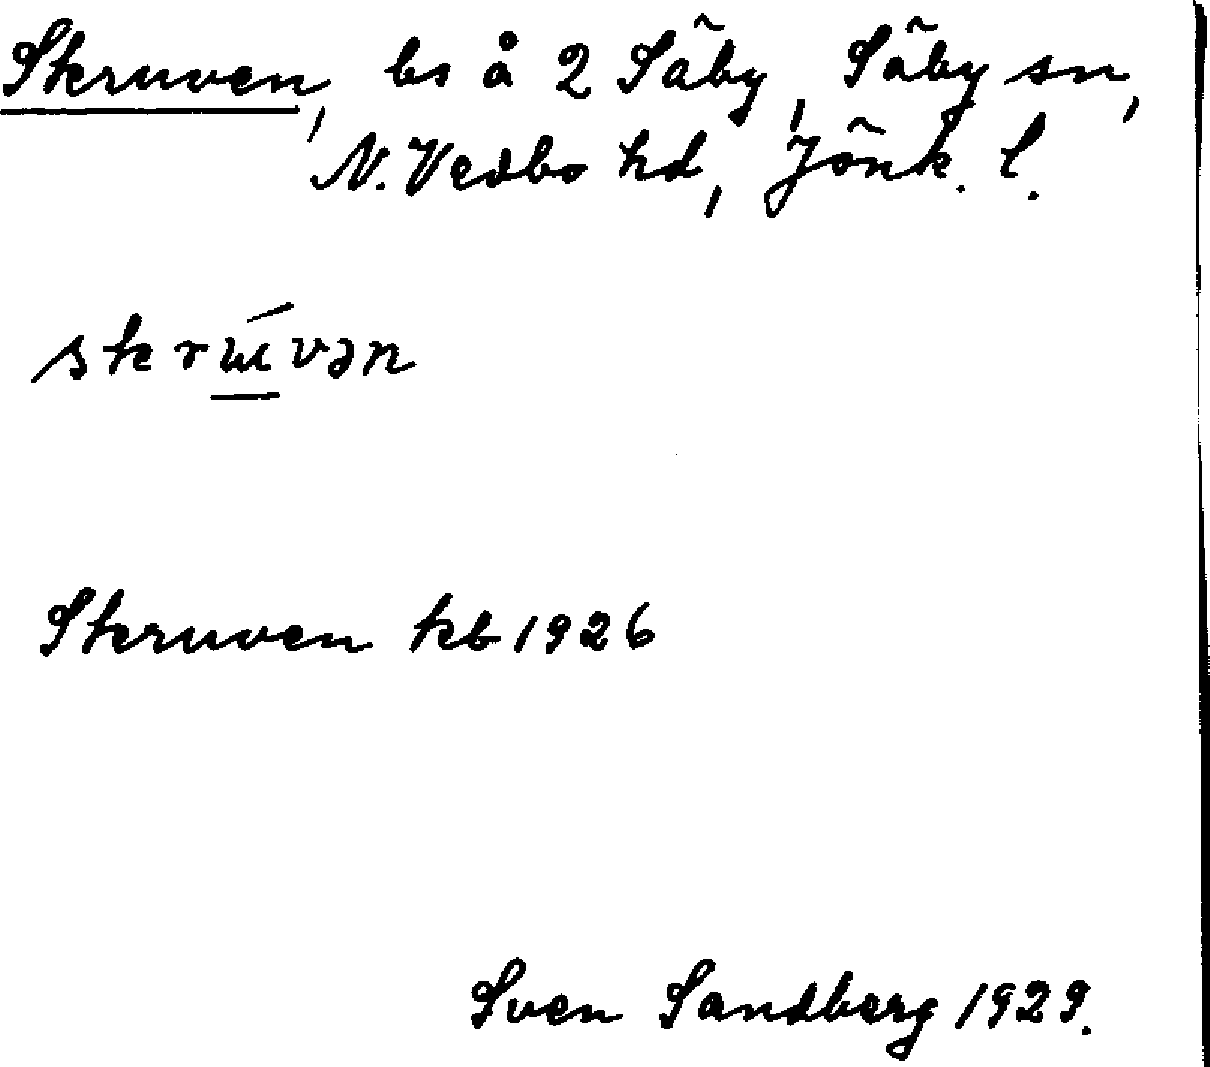 Skruven, bs å 2 Säby, Säby sn,
N. Vedbo hd, Jönk. l.
skrɯ́vən
Skruven kb 1926
Sven Sandberg 1929.